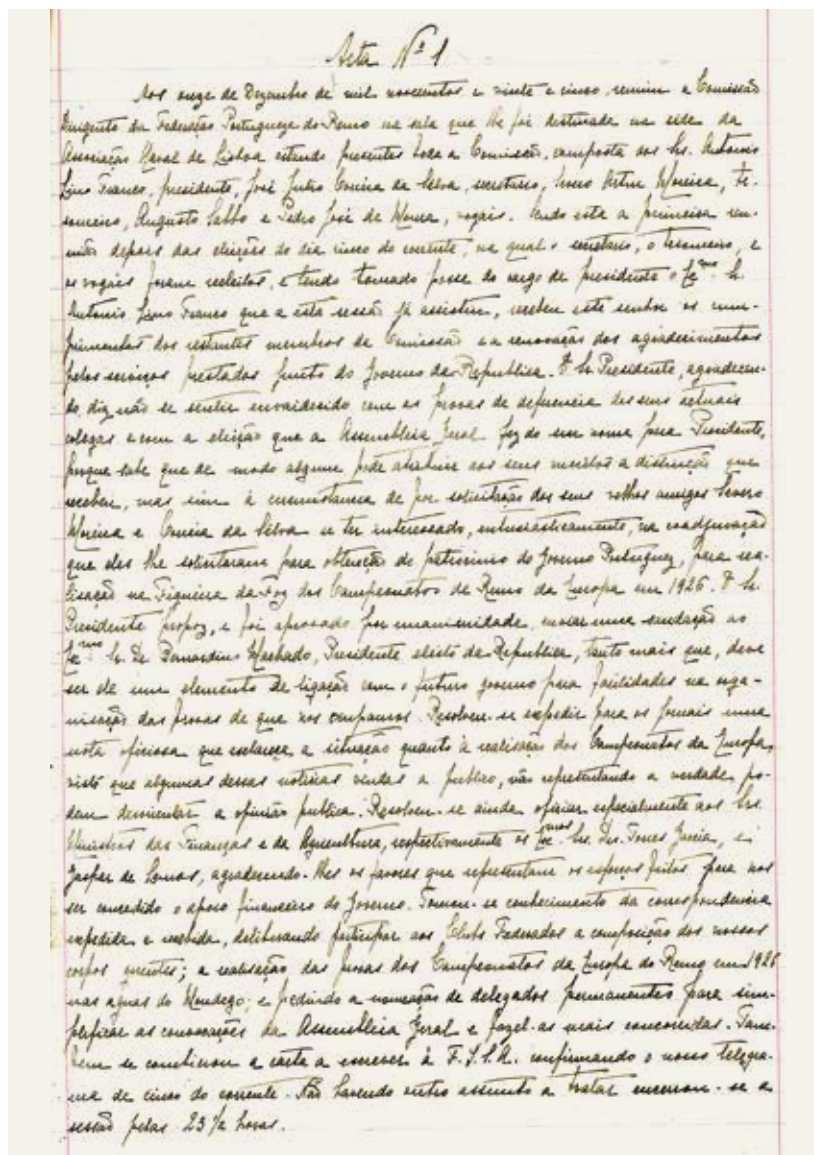 Acta Nº 1
Aos onze de Dezembro de mil novecentos e vinte e cinco, reuniu a Comissão
Dirigente da Federação Portugueza do Remo na sala que lhe foi destinada na séde da
Associação Naval de Lisboa estando presentes toda a Comissão, composta dos Srs. Antonio
Lino Franco, presidente, José Julio Correia da Silva, secretario, Severo Artur Moreira, te-
soureiro, Augusto Sabbo e Pedro José de Moura, vogais. Sendo esta a primeira reu-
nião depois das eleições do dia cinco do corrente, na qual o secretario, o tesoureiro, e
os vogais foram reeleitos, e tendo tomado posse do cargo de presidente o Exmo. Sr.
Antonio Lino Franco que a esta sessão já assistiu, recebeu este senhor os cum-
primentos dos restantes membros da Comissão e a renovação dos agradecimentos
pelos serviços prestados junto do Governo da Republica. O Sr. Presidente, agradecen-
do, diz não se sentir envaidecido com as provas de deferencia dos seus actuais
colegas e com a eleição que a Assembleia Geral fez do seu nome para Presidente,
porque sabe que de modo algum póde atribuir aos seus meritos a distinção que
recebeu, mas sim à circumstancia de por solicitação dos seus velhos amigos Severo
Moreira e Correia da Silva se ter interessado, entusiasticamente, na coadjuvação
que eles lhe solicitaram para obtenção do patrocinio do Governo Portuguez, para rea-
lisação na Figueira da Foz dos Campeonatos de Remo da Europa em 1926. O Sr.
Presidente propoz, e foi aprovado por unanimidade, enviar uma saudação ao
Exmo. Sr. Dr. Bernardino Machado, Presidente eleito da Republica, tanto mais que, deve
ser ele um elemento de ligação com o futuro governo para facilidades na orga-
nisação das provas de que nos ocupamos. Resolveu-se expedir para os jornais uma
nota oficiosa que esclareça a situação quanto à realisação dos Campeonatos da Europa,
visto que algumas dessas noticias vindas a publico, não representando a verdade po-
dem desvirtuar a opinião publica. Resolveu-se ainda oficiar especialmente aos Srs.
Ministros das Finanças e da Agricultura, respectivamente os Exmos. Srs. Drs. Torres Garcia, e
Gaspar de Lemos, agradecendo-lhes os favores que representam os esforços feitos para nos
ser concedido o apoio financeiro do Governo. Tomou-se conhecimento da correspondencia
expedida e recebida, deliberando participar aos Clubs Federados a composição dos nossos
corpos gerentes; a realisação das provas dos Campeonatos da Europa do Remo em 1926
nas aguas do Mondego; e pedindo a nomeação de delegados permanentes para sim-
plificar as convocações da Assembleia Geral e fazel-as mais concorridas. Tam-
bem se combinou a carta a escrever à F.I.S.A. confirmando o nosso telegra-
ma de cinco do corrente. Não havendo outro assunto a tratar encerrou-se a
sessão pelas 23 ½ horas.